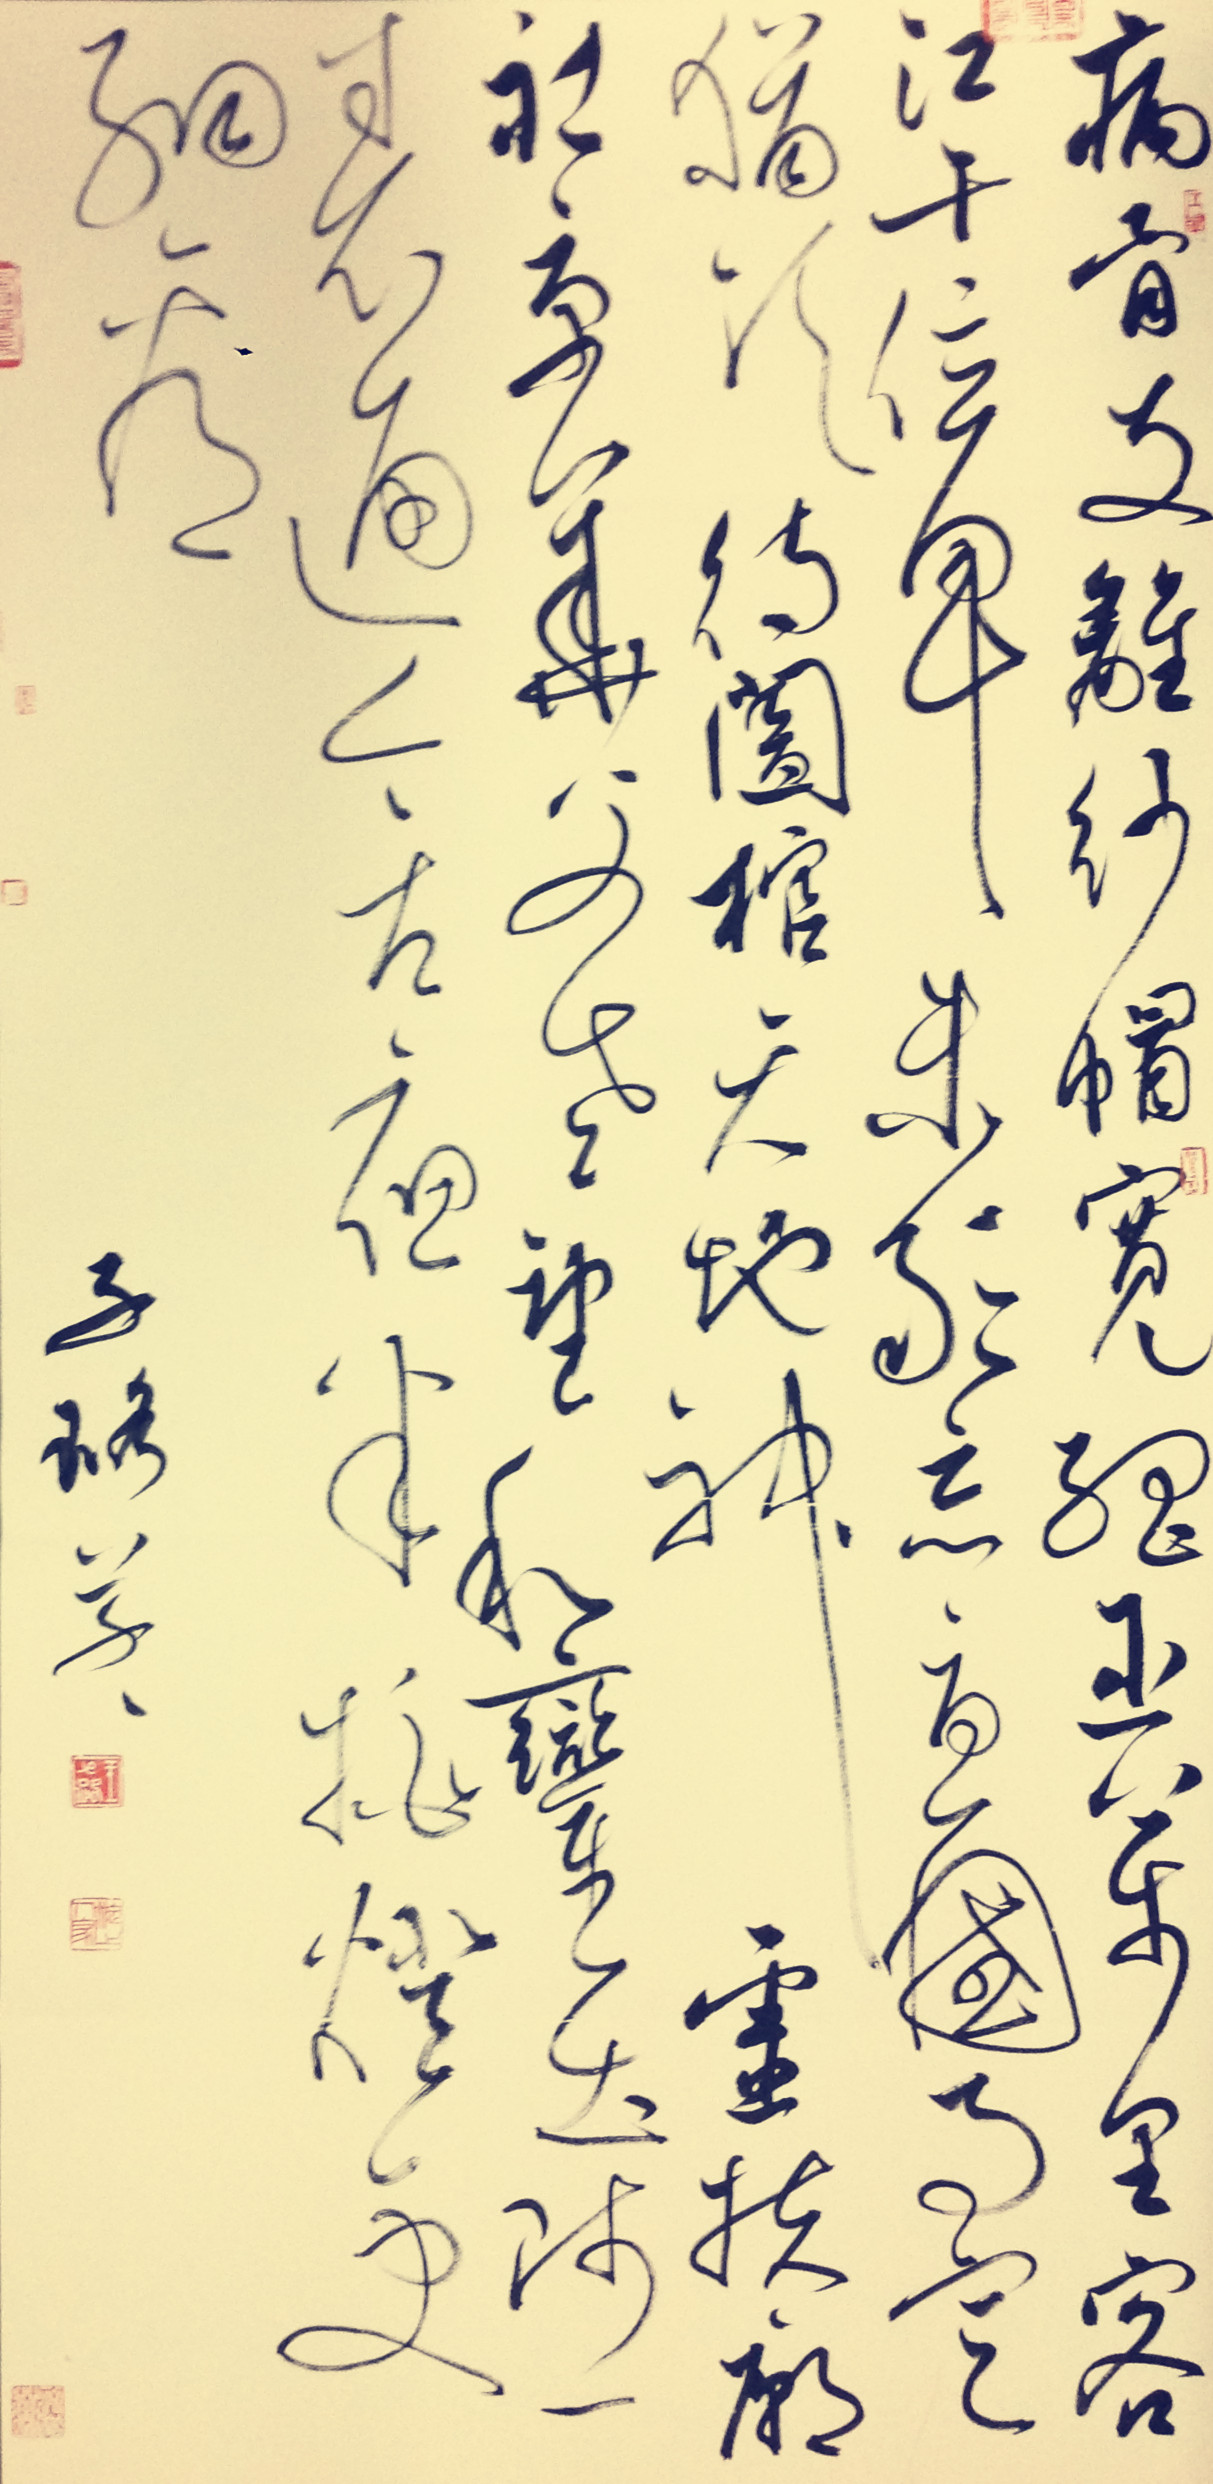 病骨支離紗帽寬孤臣萬里客
江干位卑未敢忘憂國事定
猶須待闔棺天地神靈扶廟
社京華父老望和鑾出師一
表通今古夜半挑燈更
細看
子璐